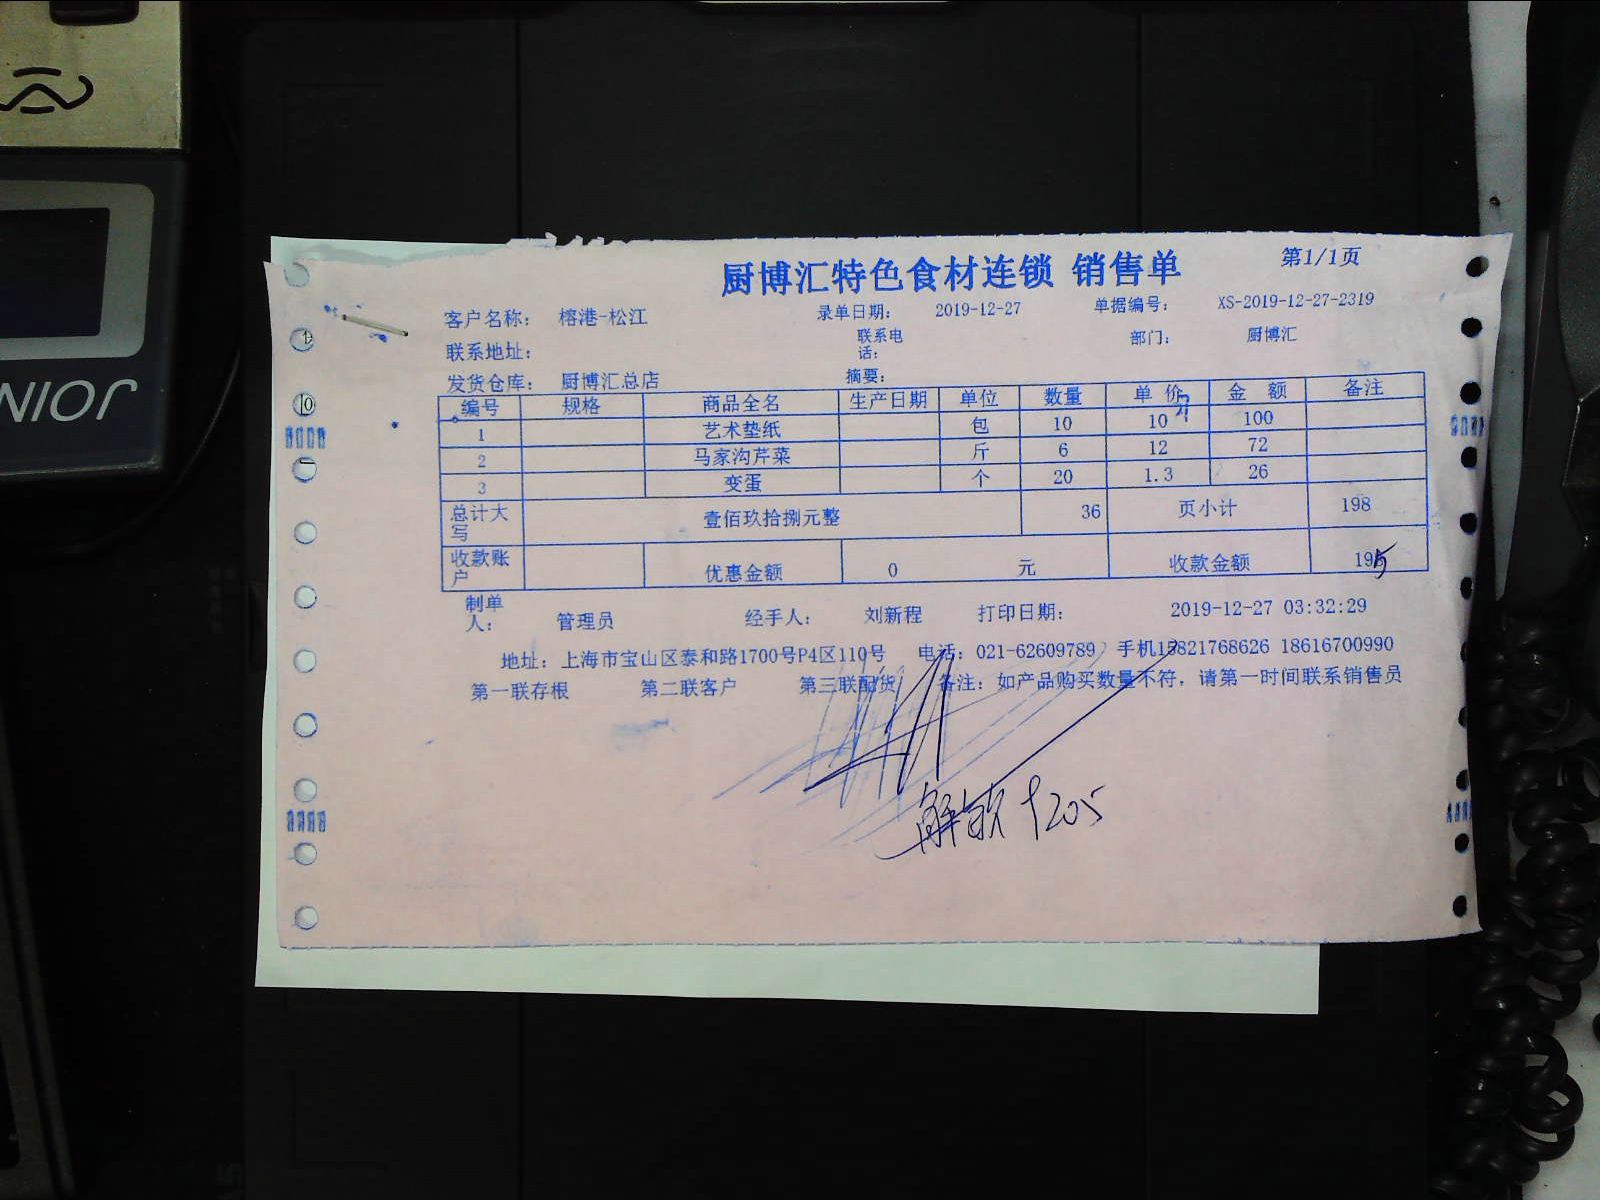 厨博汇特色食材连锁 销售单 第1/1页
客户名称: 榕港-松江 录单日期: 2019-12-27 单据编号: XS-2019-12-27-2319
联系地址: 联系电话: 部门: 厨博汇
发货仓库: 厨博汇总店 摘要:
编号 规格 商品全名 生产日期 单位 数量 单价 金额 备注
1 艺术垫纸 包 10 10 100
2 马家沟芹菜 斤 6 12 72
3 变蛋 个 20 1.3 26
总计大写 壹佰玖拾捌元整 36 页小计 198
收款账户 优惠金额 0 元 收款金额 195
制单人: 管理员 经手人: 刘新程 打印日期: 2019-12-27 03:32:29
地址: 上海市宝山区泰和路1700号P4区110号 电话: 021-62609789 手机15821768626 18616700990
第一联存根 第二联客户 第三联配货 备注: 如产品购买数量不符, 请第一时间联系销售员
JOIN